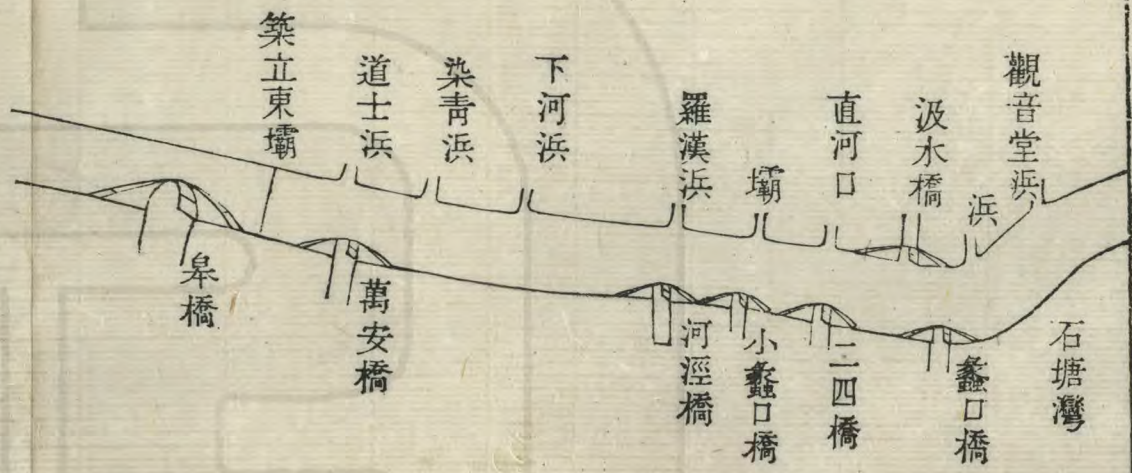 觀音堂浜
浜
汲水橋
直河口
壩
羅漢浜
下河浜
染青浜
道士浜
築立東壩
石塘灣
蠡口橋
二四橋
小蠡口橋
河涇橋
萬安橋
皋橋